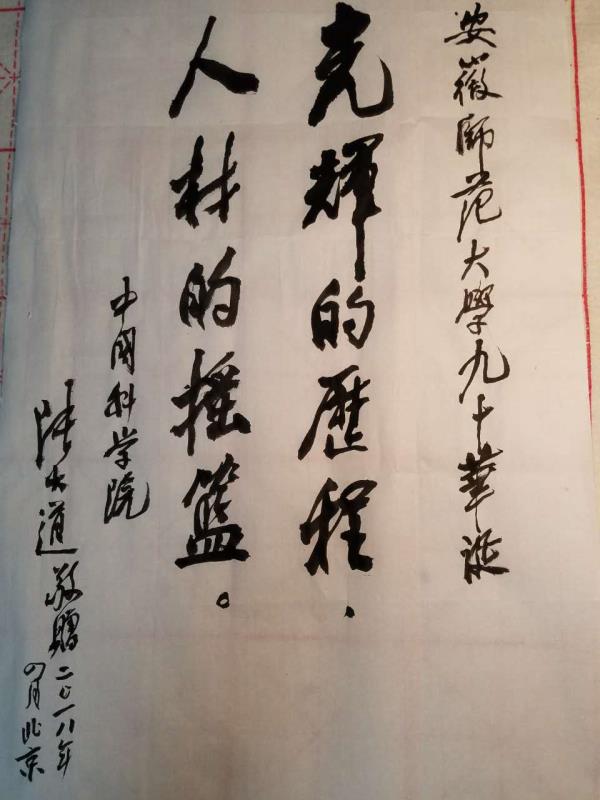 安徽師范大學九十華诞
光輝的歷程、
人材的摇籃。
中國科学院
陆大道敬贈二〇一八年
四月北京